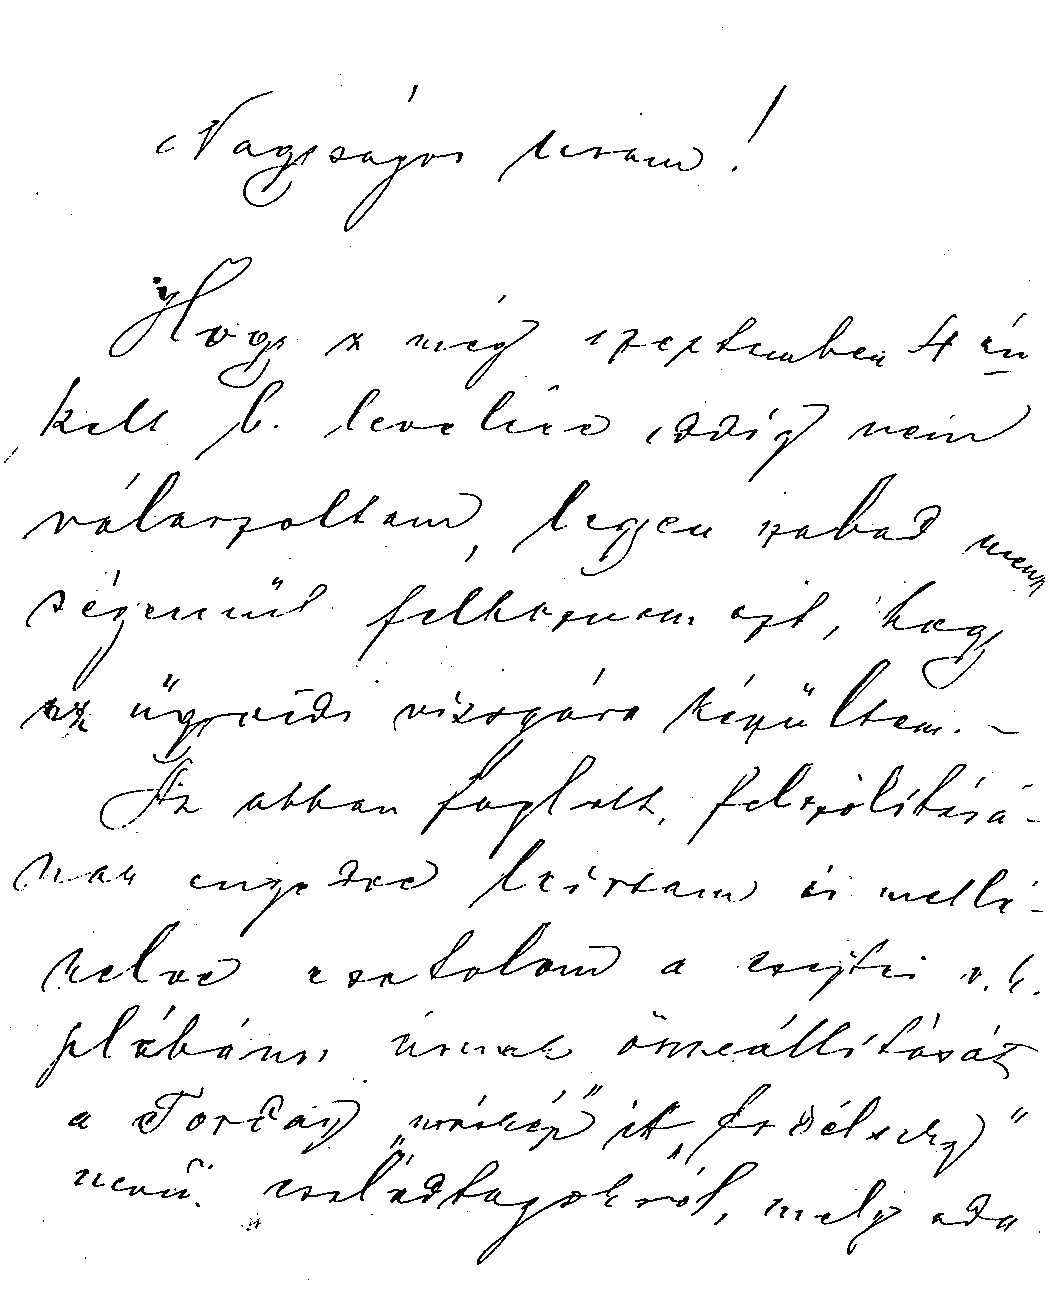 Nagyságos uram!
Hogy a még szeptember 4 én
kelt b. levelére eddig nem
válaszoltam, legyen szabad ment
ségemül felhoznom azt, hogy
az ügyvédi vizsgára készültem. –
Az abban foglalt, felszólításá-
nak engedve leírtam és mellé-
kelve csatolom a csejtei r. k.
plébános úrnak összeállítását
a Torday „máskép" it „Erdélszky"
nevű családtagokról, mely ada